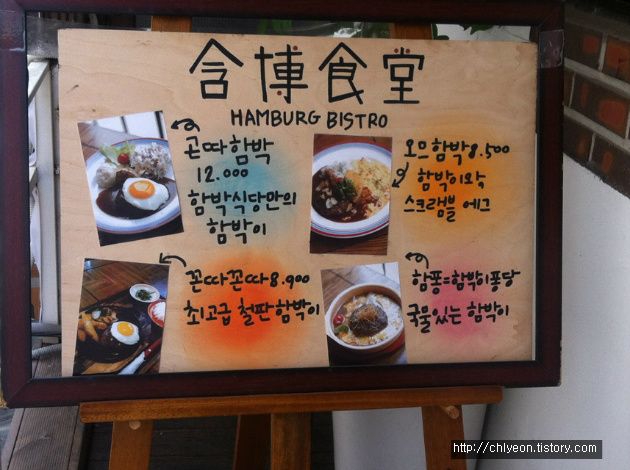 含博食堂
HAMBURG BISTRO
곤따함박
12.000
함박식당만의
함박이
오므함박8.500
함박이와
스크램블 에그
꼰따꼰따8.900
최고급 철판함박이
함퐁=함박이퐁당
국물있는 함박이
http://chlyeon.tistory.com